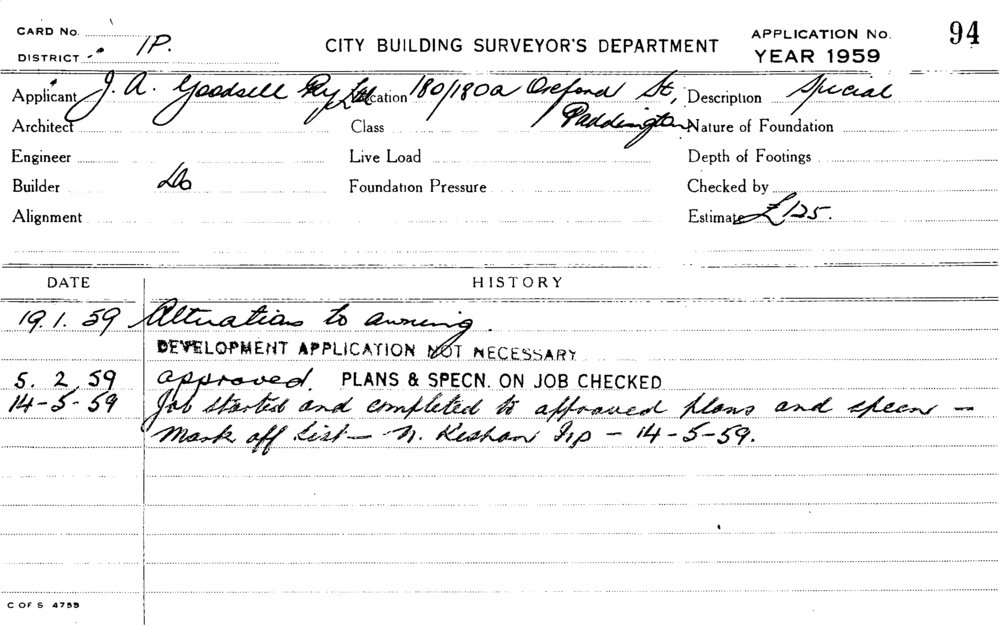 CARD No.
DISTRICT 1P.
CITY BUILDING SURVEYOR'S DEPARTMENT
APPLICATION No. 94
YEAR 1959
Applicant J. A. Goodsell Pty Ltd Location 180/180a Oxford St, Paddington Description Special
Architect Class Nature of Foundation
Engineer Live Load Depth of Footings
Builder Do Foundation Pressure Checked by
Alignment Estimate £125.
DATE HISTORY
19.1.59 Alterations to awning.
DEVELOPMENT APPLICATION NOT NECESSARY
5.2.59 approved. PLANS & SPECN. ON JOB CHECKED
14-5-59 Job started and completed to approved plans and specn –
Mark off List – N. Keshan Isp – 14-5-59.
C OF S 4755